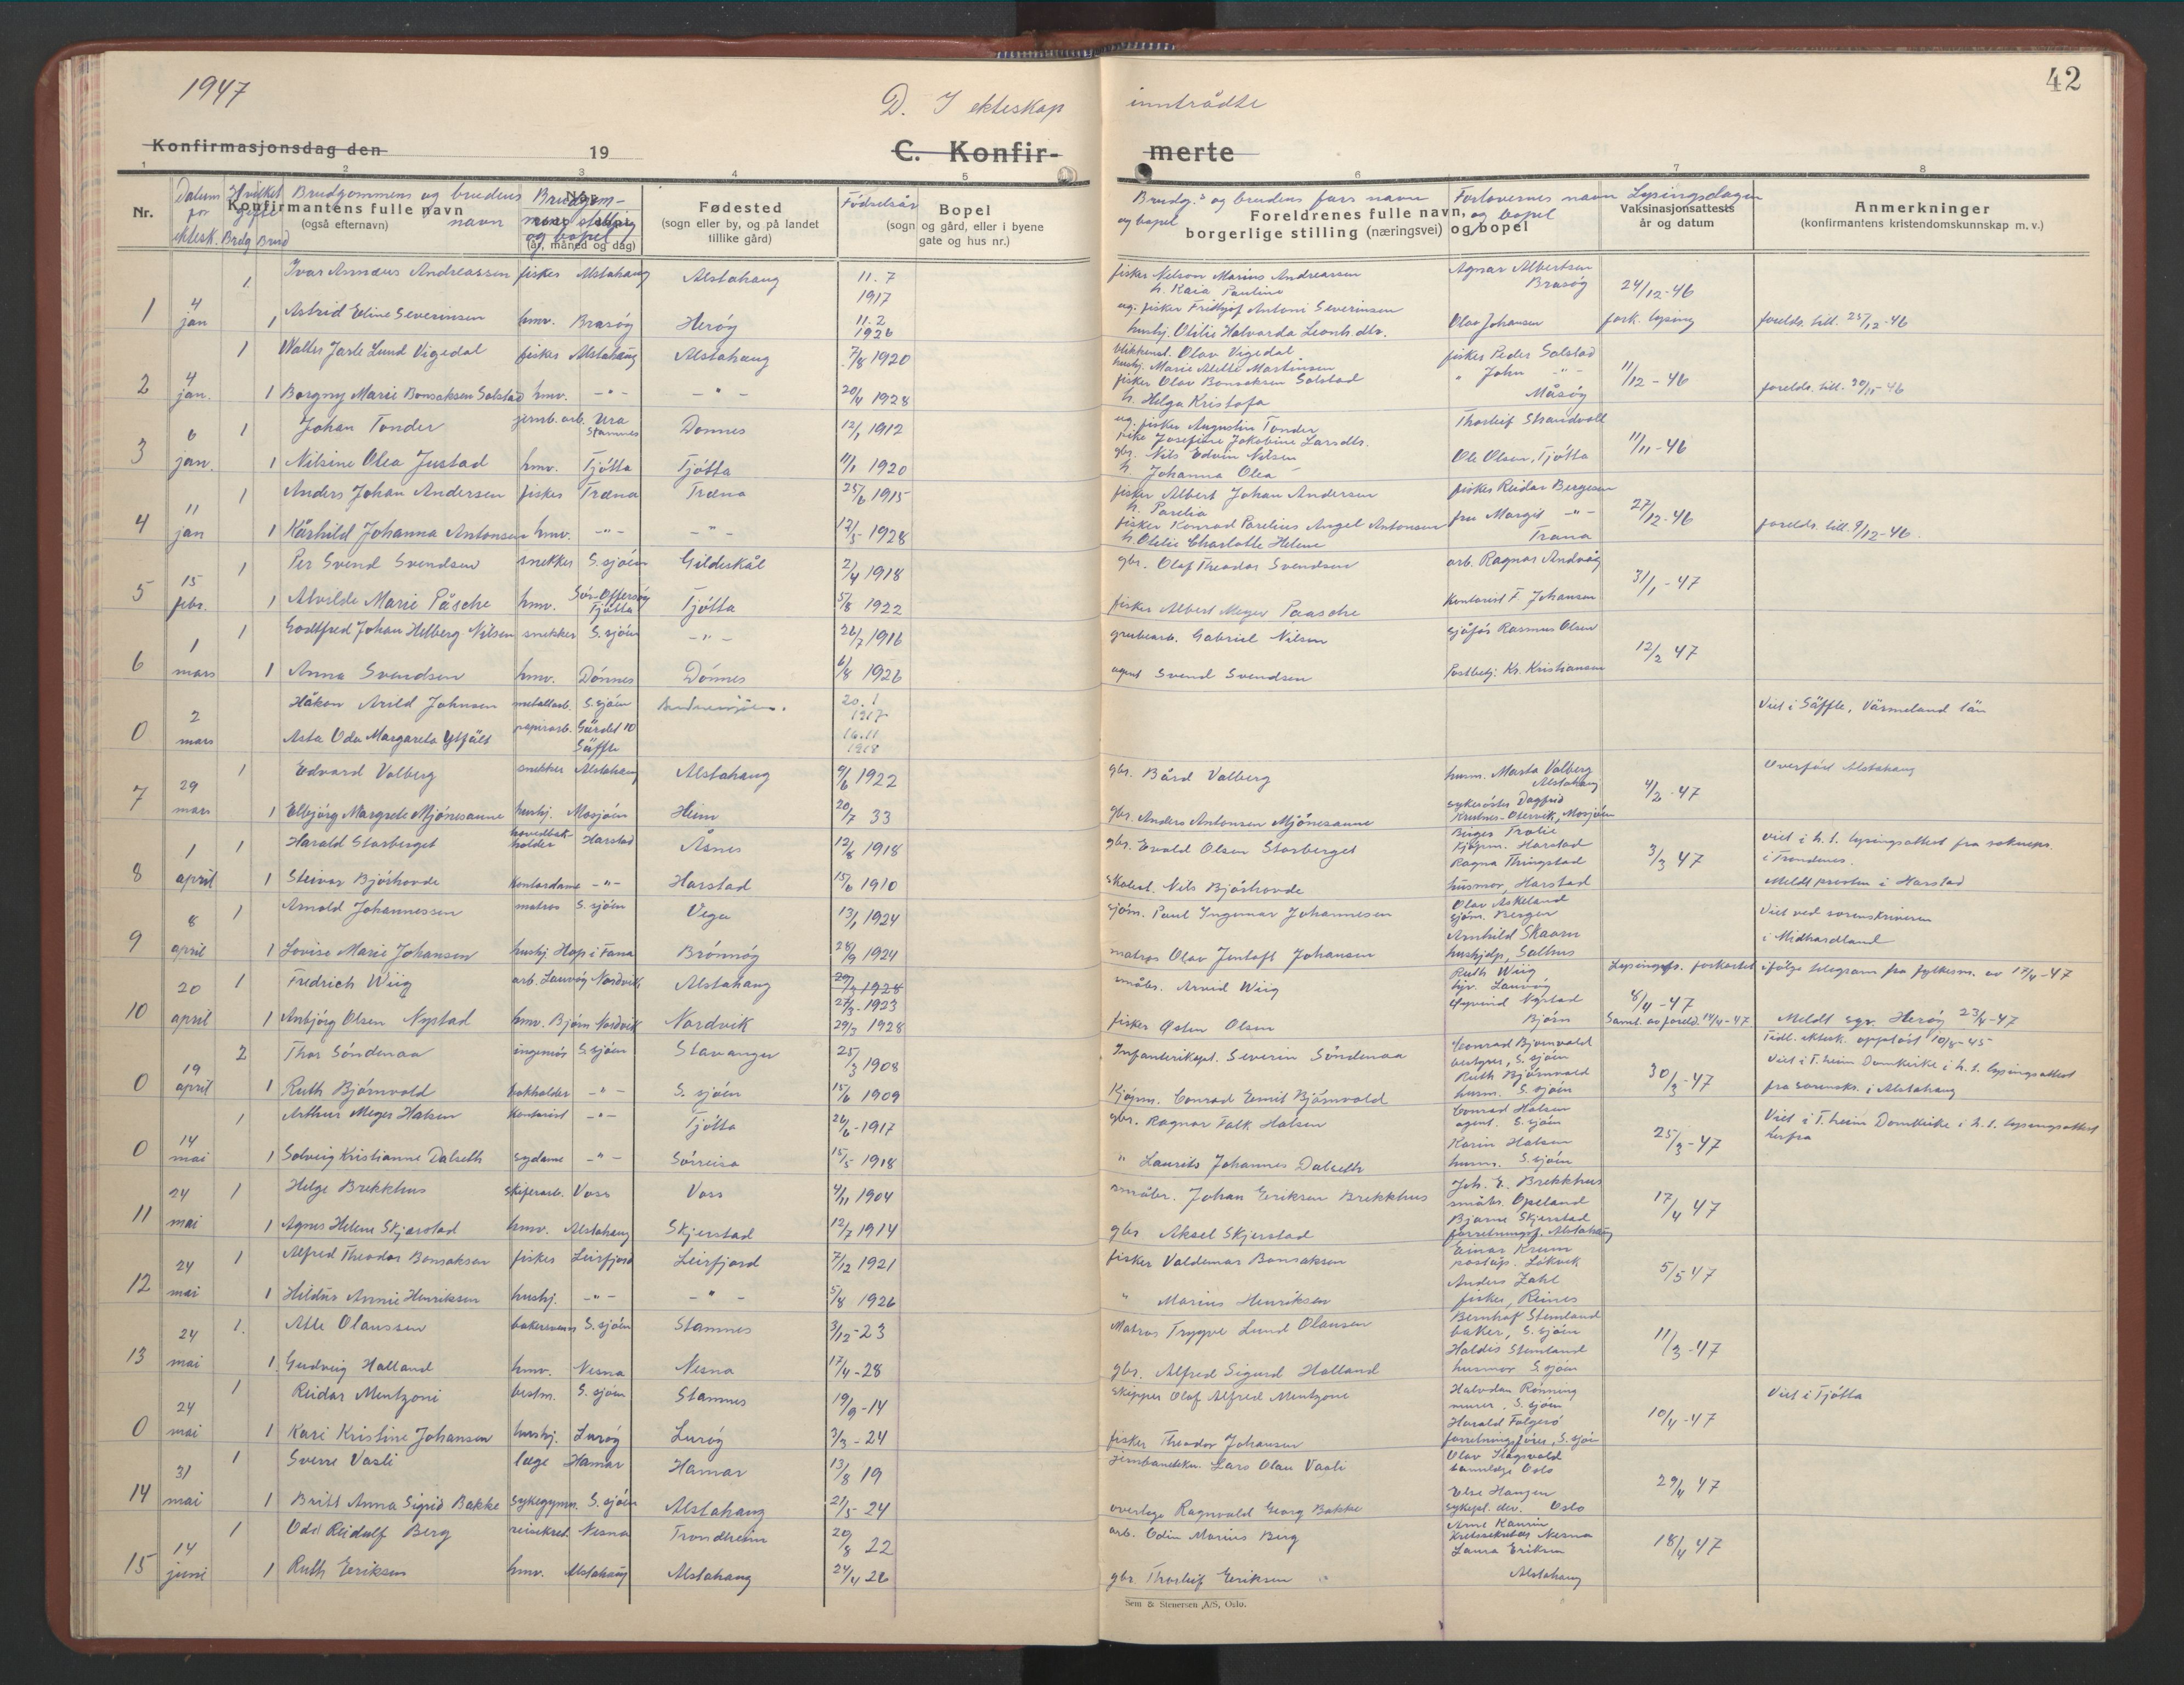 1947
42
D. I ekteskap inntrådte
Konfirmasjonsdag den 19 C. Konfir- merte
1 2 3 4 5 6 7 8
Nr. Datum for ektesk. Hvilket gifte Brudg Brud Brudgommens og brudens navn Brudgommens stilling og bopel Fødselsår Brudg.s og brudens fars navn og bopel Forlovernes navn og bopel Lysingsdagen
Konfirmantens fulle navn
(også efternavn)
(år, måned og dag)
Fødested
(sogn eller by, og på landet
tillike gård)
Bopel
(sogn og gård, eller i byene
gate og hus nr.)
Foreldrenes fulle navn,
borgerlige stilling (næringsvei) og bopel
Vaksinasjonsattests
år og datum
Anmerkninger
(konfirmantens kristendomskunnskap m. v.)
1 4 jan 1 Ivar Annæus Andreassen fisker Alstahaug Alstahaug 11.7 1917 fisker Nelson Marius Andreassen h. Kaia Pauline Agnar Albertsen Brasøy 24/12-46
1 Astrid Eline Severinsen hmv. Brasøy Herøy 11.2 1926 ug. fisker Fridtjof Antoni Severinsen hushj. Otilie Halvarda Leonh.dtr. Olav Johansen fork. lysing forelds. till. 25/12-46
2 4 jan. 1 Walter Jarle Lund Vigedal fisker Alstahaug Alstahaug 7/8 1920 blikkensl. Olav Vigedal hushj. Marie Martinsen fisker Peder Solstad 11/12-46
1 Borgny Marie Bonsaksen Solstad hmv. -"- -"- 20/4 1928 fisker Olav Bonsaksen Solstad h. Helga Kristofa " John -"- Måsøy forelds. till.
3 6 jan. 1 Johan Tonder jernb.arb. Ura Stamnes Dønnes 12/1 1912 ug. fisker Augustin Tonder pike Josefine Jakobine Larsdtr. Thorleif Strandvoll 11/11-46
1 Nilsine Olea Justad hmv. Tjøtta Tjøtta 11/1 1920 gbr. Nils Edvin Nilsen h. Johanna Olea Ole Olsen, Tjøtta
4 11 jan 1 Anders Johan Andersen fisker Træna Træna 25/6 1915 fisker Albert Johan Andersen h. Parelia fisker Reidar Bergesen 27/12-46
1 Kårhild Johanna Antonsen hmv. -"- -"- 12/5 1928 fisker Konrad Parelius Angel Antonsen h. Otelie Charlotte Helene fru Margit -"- Træna forelds. till. 9/12-46.
5 15 febr. 1 Per Svend Svendsen snekker S.sjøen Gildeskål 2/4 1918 gbr. Olaf Theodor Svendsen arb. Ragnar Andvåg 31/1-47
1 Alvilde Marie Påsche hmv. Sør-Offersøy Tjøtta Tjøtta 5/8 1922 fisker Albert Meyer Paasche Kontorist F Johansen
6 1 mars 1 Godtfred Johan Helberg Nilsen snekker S.sjøen -"- 26/7 1916 grubearb. Gabriel Nilsen sjåfør Rasmus Olsen 12/2 47
1 Anna Svendsen hmv. Dønnes Dønnes 6/8 1926 agent Svend Svendsen Postbetj. Kr. Kristiansen
0 2 mars Håkon Arild Johnsen metallarb. S.sjøen Sandnessjøen. 20.1 1917 Viet i Säffle, Värmeland län
Asta Oda Margareta Ytfält papirarb. Säffle 16.11 1918
7 29 mars 1 Edvard Valberg snekker Alstahaug Alstahaug 9/6 1922 gbr. Bård Valberg husm. Marta Valberg Alstahaug 4/2-47 Overført Alstahaug
1 Elbjørg Margrete Mjønesaune hushj. Mosjøen Heim 20/7 33 gbr. Anders Antonsen Mjønesaune sykesøster Dagfrid Krutnes-Olervik, Mosjøen
8 1 april 1 Harald Storberget hovedbokholder Harstad Åsnes 12/8 1918 gbr. Evald Olsen Storberget Birger Trolie Kjøpm. Harstad 3/3 47 viet i h. t. lysingsattest fra sokneprs. i Trondenes.
1 Steinar Bjørhovde Kontordame -"- Harstad 15/6 1910 skolest. Nils Bjørhovde Ragna Thingstad husmor, Harstad Meldt presten i Harstad
9 8 april 1 Arnold Johannessen matros S.sjøen Vega 13/1 1924 sjøm. Paul Ingemar Johannesen Olav Askeland sjøm. Bergen Viet ved sorenskriveren
1 Lovise Marie Johansen hushj Hop i Fana Brønnøy 28/9 1924 matros Olav Jentoft Johansen Arnhild Skaarn hushjelp, Salhus i Midhordland
10 20 april 1 Fredrich Wiig arb. Lauvøy Nordvik Alstahaug 27/3-1923 småbr. Arvid Wiig Ruth Wiig Lauvøy Lysingsfr. forkortet ifølge telegram fra fylkesm. av 17/4-47
1 Anbjørg Olsen Nystad hmv. Bjørn Nordvik Nordvik 29/3 1928 fisker Østen Olsen Øyvind Nystad Bjørn 8/4-47 Samt. av foreld. 14/4-47 Meldt spr. Herøy 23/4-47
0 19 april 2 Thor Søndenaa ingeniør S.sjøen Stavanger 25/3 1908 Infanterikapt. Severin Søndenaa Conrad Bjørnvold S. sjøen 30/3-47 Tidl. ektesk. oppløst 10/8-45
1 Ruth Bjørnvold bokholder -"- S. sjøen 15/6 1909 Kjøpm. Conrad Emil Bjørnvold Ruth Bjørnvold husm. S. sjøen Viet i T.heim Domkirke i h. t. lysingsattest fra sorensk. i Alstahaug
0 14 mai 1 Arthur Meyer Halsen Kontorist -"- Tjøtta 26/6-1917 gbr. Ragnar Falk Halsen Conrad Halsen agent. S. sjøen 25/3-47 Viet i T.heim Domkirke i h. t. lysingsattest herfra
1 Solveig Kristianne Dalseth sydame -"- Sørreisa 15/5 1918 " Laurits Johannes Dalseth Karin Halsen husm. S.sjøen
11 24 mai 1 Helge Brekkhus skiferarb. Voss Voss 4/11 1904 småbr. Johan Eriksen Brekkhus Joh. E. Brekkhus småbr. Opeland 17/4 47
1 Agnes Helene Skjerstad hmv. Alstahaug Skjerstad 12/7 1914 gbr Aksel Skjerstad Bjarne Skjerstad forretningsf. Alstahaug
12 24 mai 1 Alfred Theodor Bonsaksen fisker Leirfjord Leirfjord 7/12 1921 fisker Valdemar Bonsaksen Einar Krum poståp. Løkvik 5/5 47
1 Hildur Annie Henriksen hushj. -"- -"- 5/8 1926 " Marius Henriksen Anders Zahl fisker, Reines
13 24 mai 1. Atle Olaussen bakersvenn S.sjøen Stamnes 3/12-23 Matros Trygve Lund Olausen Bernhof Stemland baker, S.sjøen 11/3-47
1. Gudveig Halland hmv. Nesna Nesna 17/4-28 gbr. Alfred Sigurd Halland Haldis Stemland husmor S.sjøen
0 24 mai 1 Reidar Mentzoni bestm. S.sjøen Stamnes 19/9-14 skipper Olaf Alfred Mentzoni Halvdan Rønning murer, S.sjøen 10/4-47 Viet i Tjøtta
1 Kari Kristine Johansen hushj. Lurøy Lurøy 3/3-24 fisker Theodor Johansen Harald Falgerø forretningsfører, S.sjøen
14 31 mai 1 Sverre Vasli læge Hamar Hamar 13/8 19 jernbaneekn. Lars Olav Vasli Olav Skogsvold tannlege Oslo 29/4 47
1 Britt Anna Sigrid Bakke sykegymn. S.sjøen Alstahaug 21/5-24 overlege Ragnvald Georg Bakke Else Haugen sykepl. elev. Oslo
15 14 juni 1 Odd Reidulf Berg reisekred. Nesna Trondheim 20/8 22 arb. Odin Marius Berg Arne Kaurin Kretssekretær Nesna 18/4 47
1 Ruth Eriksen hmv. Alstahaug Alstahaug 24/4 26 gbr. Thorleif Eriksen Laura Eriksen Alstahaug
Sem & Stenersen A/S, Oslo.